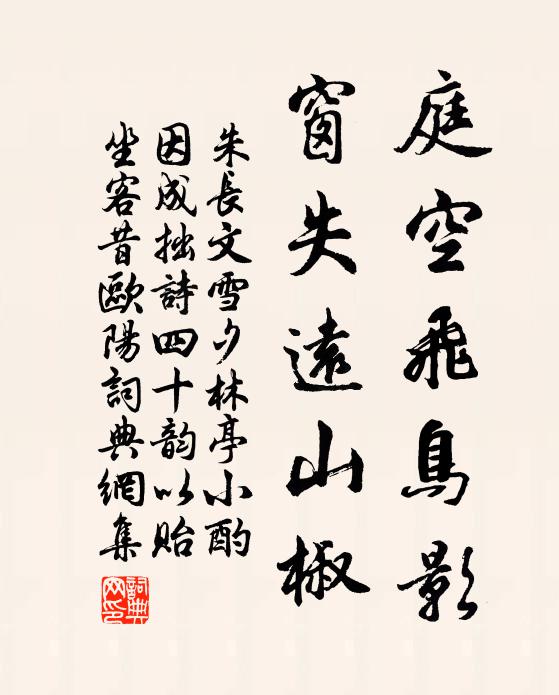 庭空飛鳥影
窗失遠山椒
朱長文雪夕林亭小酌
因成拙詩四十韵以貽
坐客昔歐陽詞典網集
詞典網印